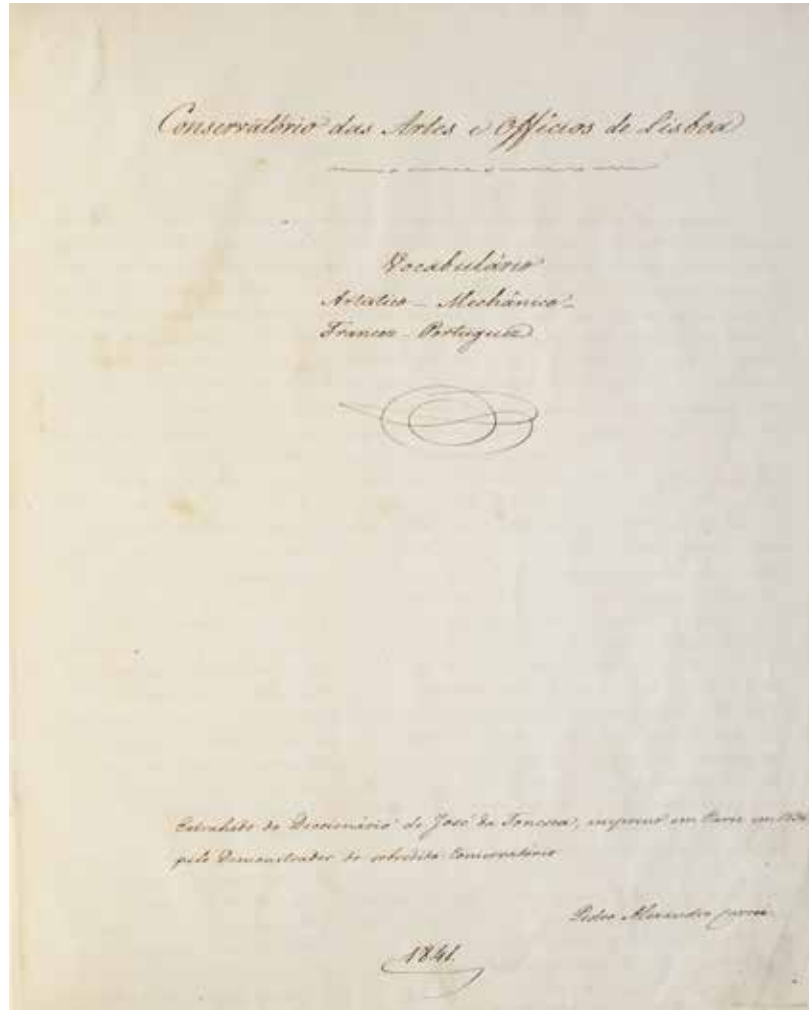 Conservatório das Artes e Officios de Lisboa
Vocabulário
Artistico - Mechânico -
Francez - Portuguez
Extrahido do Diccionário de José da Fonceca, impresso em Paris em
pelo Demonstrador do sobredito Conservatório
Pedro Alexandre
1841.